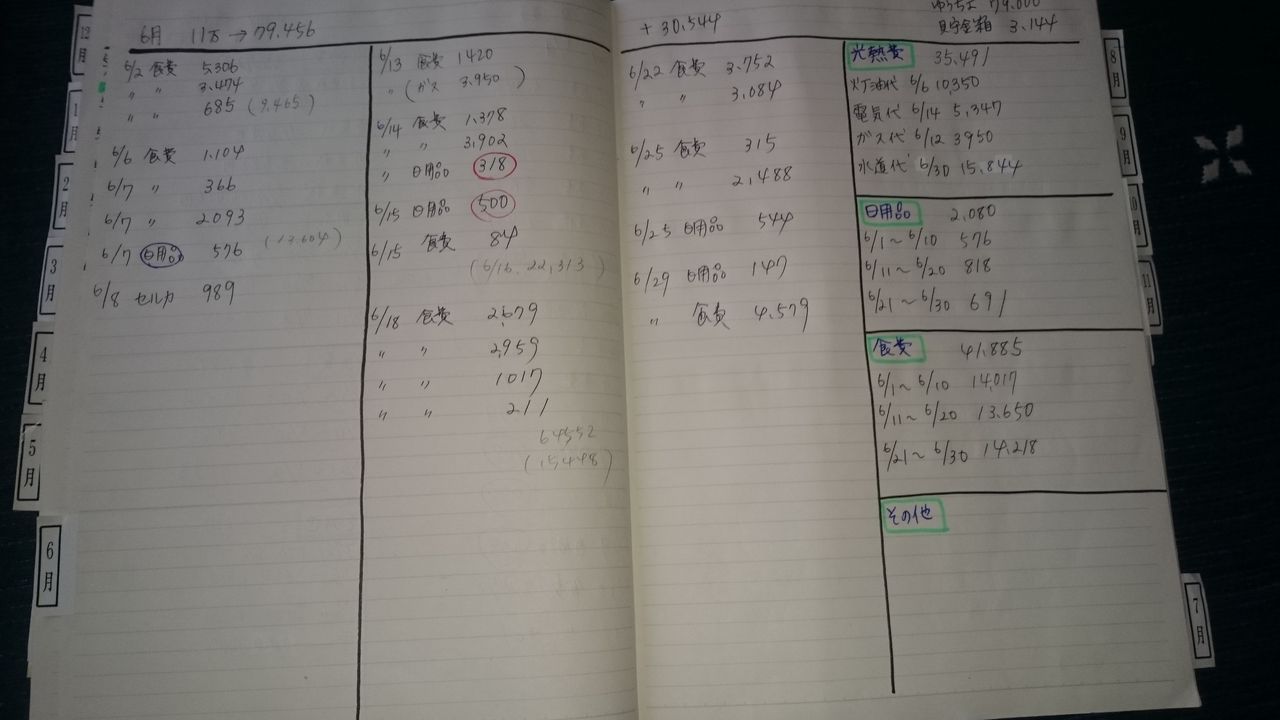 6月 11万→79.456
6/2 食費 5.306
〃 〃 3.474
〃 〃 685 (9,465)
6/6 食費 1.104
6/7 〃 366
6/7 〃 2093
6/7 日用品 576 (13.604)
6/8 セルカ 989
6/13 食費 1420
〃 (ガス 3.950)
6/14 食費 1.378
〃 〃 3.902
〃 日用品 318
6/15 日用品 500
6/15 食費 84
(6/16. 22,313)
6/18 食費 2679
〃 〃 2,959
〃 〃 1017
〃 〃 211
64,552
(15,448)
+30.544
ゆうちょ 79.000
貯金箱 3.144
6/22 食費 3.752
〃 〃 3,084
6/25 食費 315
〃 〃 2.488
6/25 日用品 544
6/29 日用品 147
〃 食費 4.579
光熱費 35.491
灯油代 6/6 10350
電気代 6/14 5,347
ガス代 6/12 3950
水道代 6/30 15.844
日用品 2,080
6/1〜6/10 576
6/11〜6/20 818
6/21〜6/30 691
食費 41.885
6/1〜6/10 14.017
6/11〜6/20 13.650
6/21〜6/30 14.218
その他
12月
1月
2月
3月
4月
5月
6月
8月
9月
10月
11月
7月